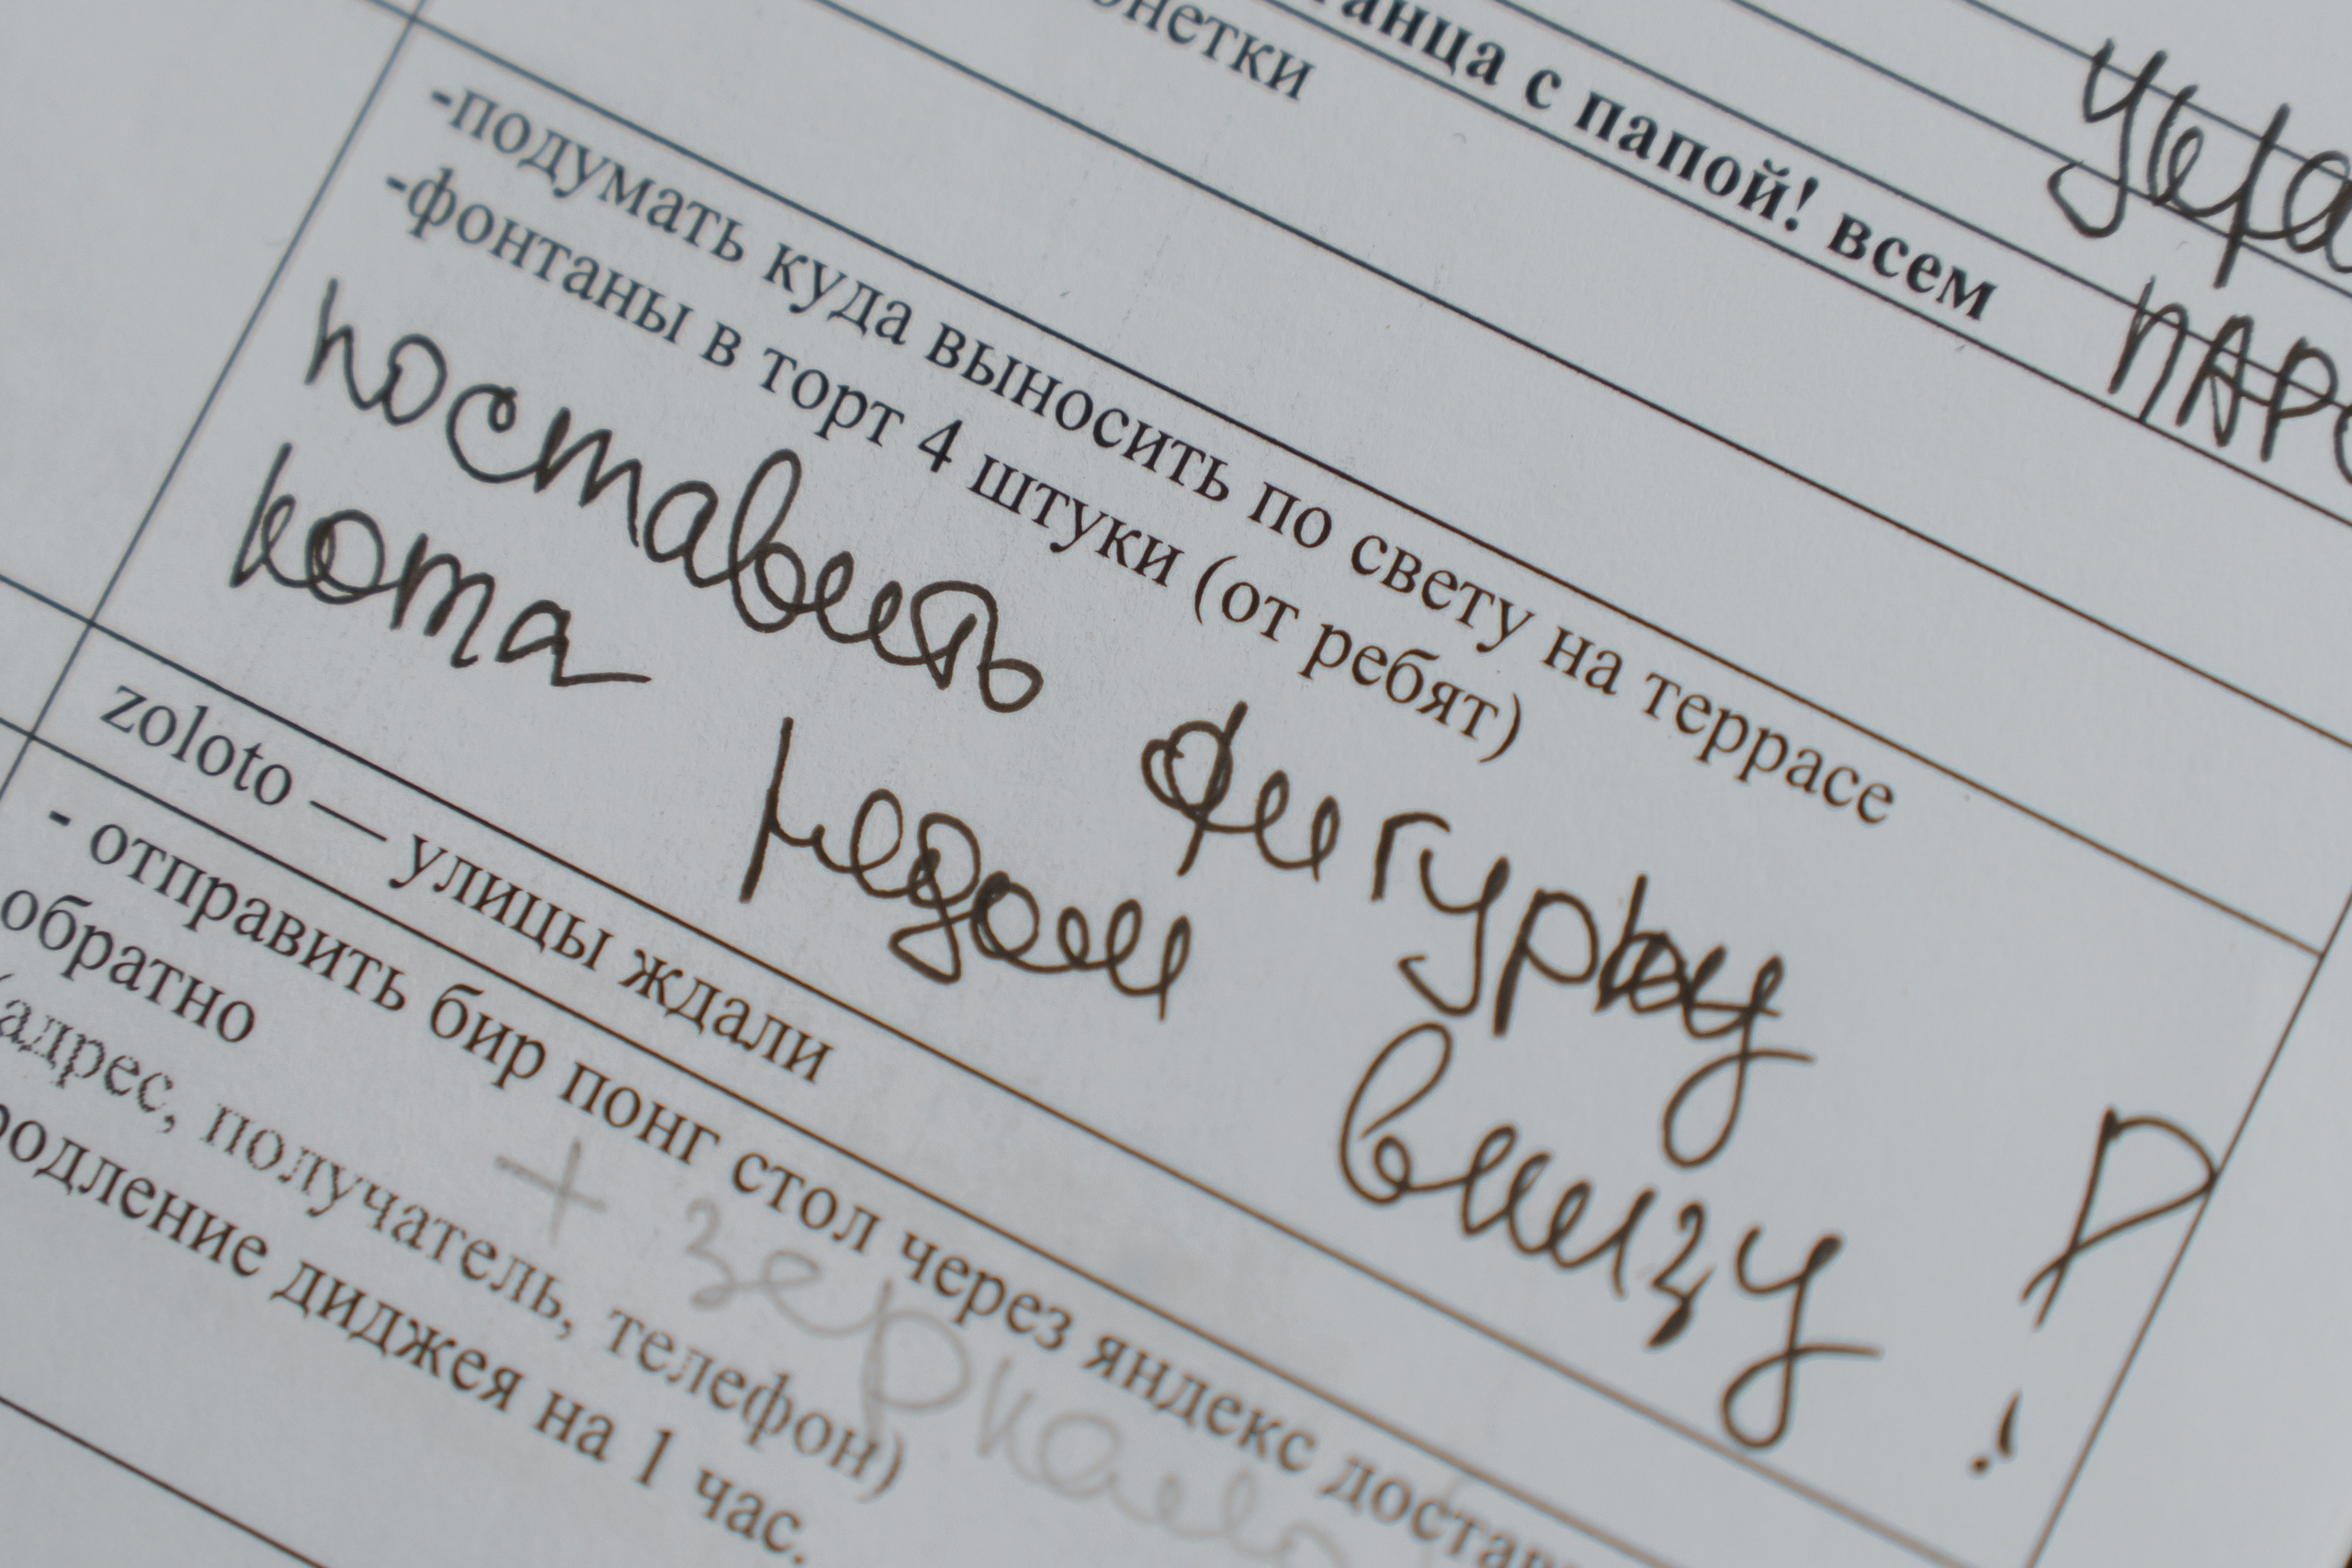 танца с папой! всем
-подумать куда выносить по свету на террасе
-фонтаны в торт 4 штуки (от ребят)
поставить фигурку
кота рядом внизу !
zoloto — улицы ждали
- отправить бир понг стол через яндекс
обратно
+ зеркало
(адрес, получатель, телефон)
диджея на 1 час.